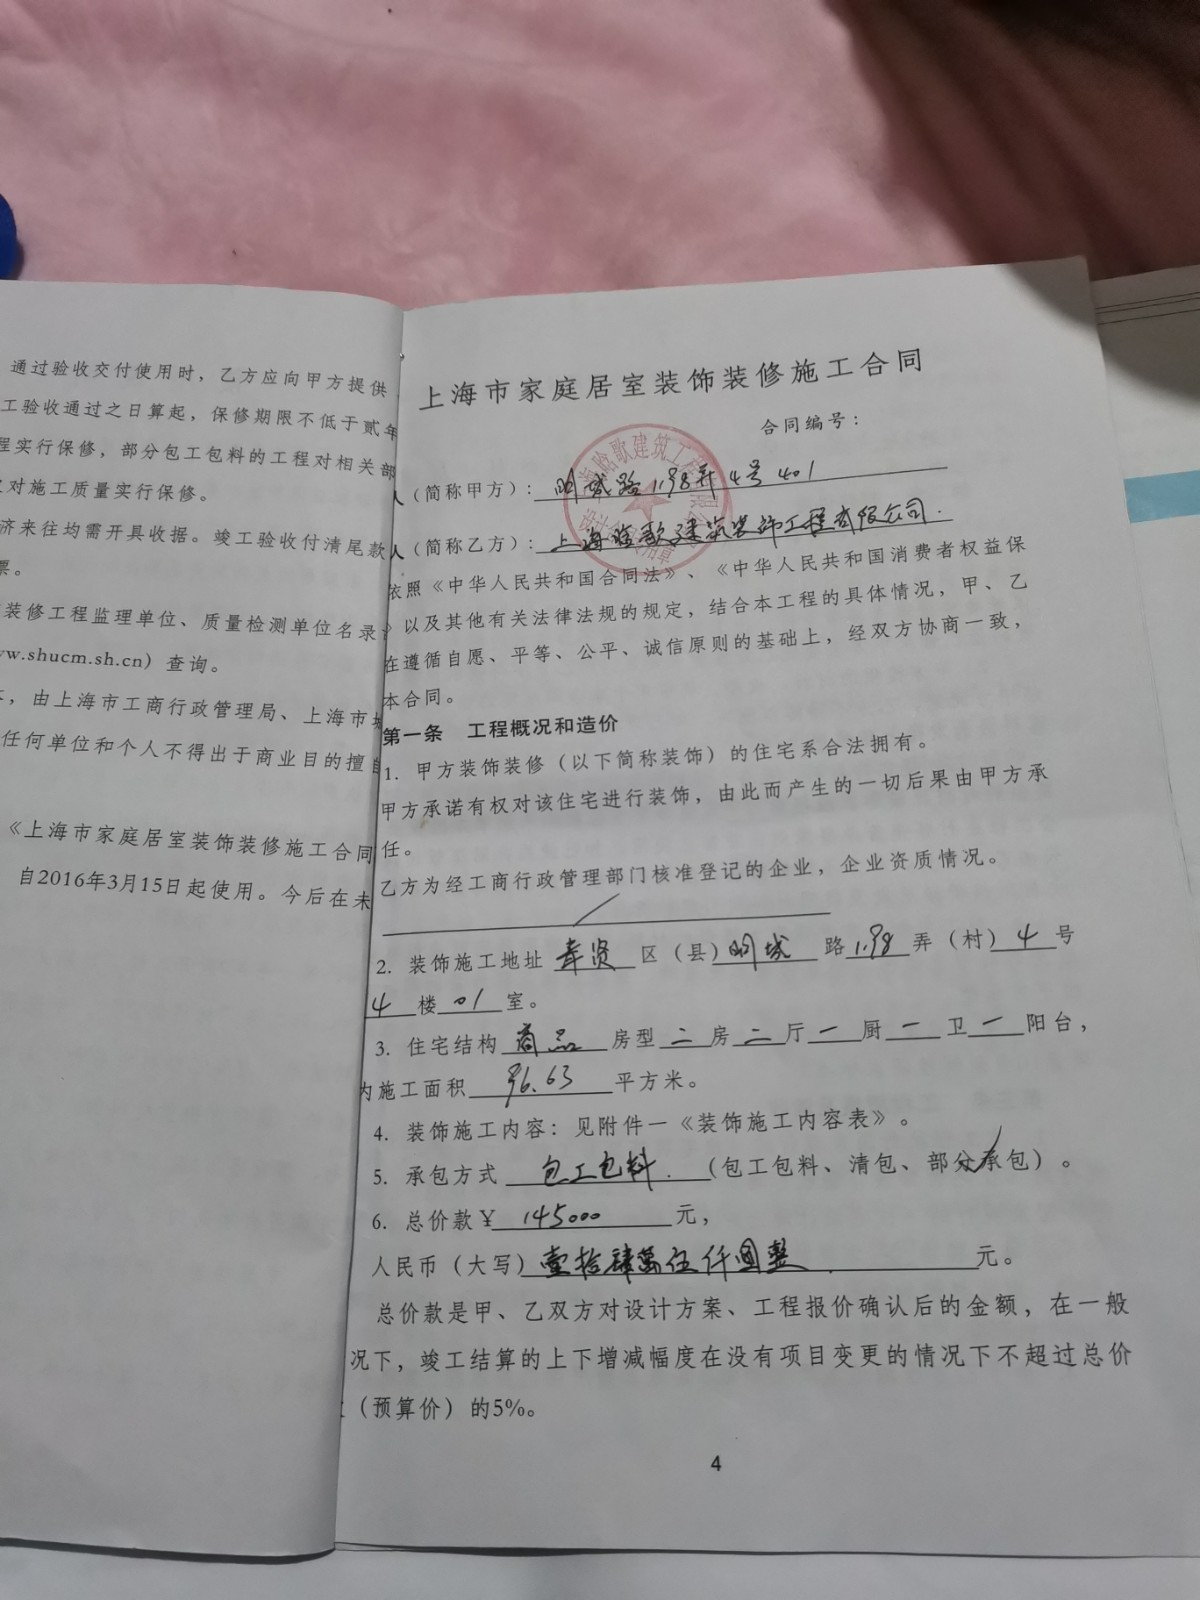 通过验收交付使用时，乙方应向甲方提供
工验收通过之日算起，保修期限不低于贰年
程实行保修，部分包工包料的工程对相关部
对施工质量实行保修。
济来往均需开具收据。竣工验收付清尾款
票。
装修工程监理单位、质量检测单位名录
w.shucm.sh.cn）查询。
，由上海市工商行政管理局、上海市
任何单位和个人不得出于商业目的擅自
《上海市家庭居室装饰装修施工合同
自2016年3月15日起使用。今后在未
上海市家庭居室装饰装修施工合同
合同编号：
人（简称甲方）：明城路1198弄4号401
人（简称乙方）：上海晗歌建筑装饰工程有限公司.
依照《中华人民共和国合同法》、《中华人民共和国消费者权益保
》以及其他有关法律法规的规定，结合本工程的具体情况，甲、乙
在遵循自愿、平等、公平、诚信原则的基础上，经双方协商一致，
本合同。
第一条 工程概况和造价
1. 甲方装饰装修（以下简称装饰）的住宅系合法拥有。
甲方承诺有权对该住宅进行装饰，由此而产生的一切后果由甲方承
任。
乙方为经工商行政管理部门核准登记的企业，企业资质情况。
2. 装饰施工地址 奉贤 区（县）明城 路 1198 弄（村） 4 号
4 楼 01 室。
3. 住宅结构 商品 房型 二 房 二 厅 一 厨 一 卫 一 阳台，
内施工面积 96.63 平方米。
4. 装饰施工内容：见附件一《装饰施工内容表》。
5. 承包方式 包工包料. （包工包料、清包、部分承包）。
6. 总价款￥ 145000 元，
人民币（大写）壹拾肆萬伍仟圆整 . 元。
总价款是甲、乙双方对设计方案、工程报价确认后的金额，在一般
况下，竣工结算的上下增减幅度在没有项目变更的情况下不超过总价
（预算价）的5%。
4